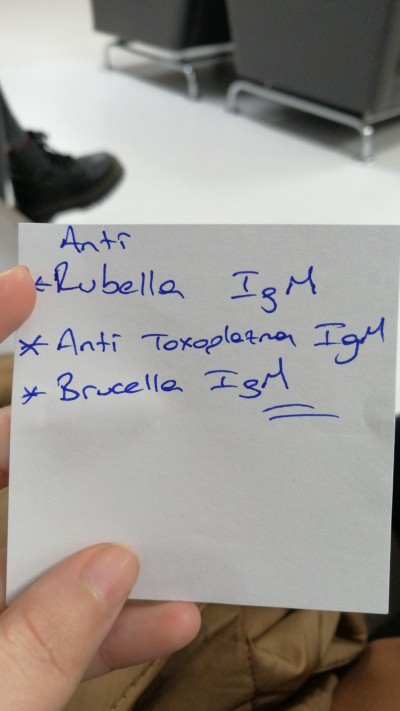 Anti
* Rubella IgM
* Anti Toxoplazma IgM
* Brucella IgM